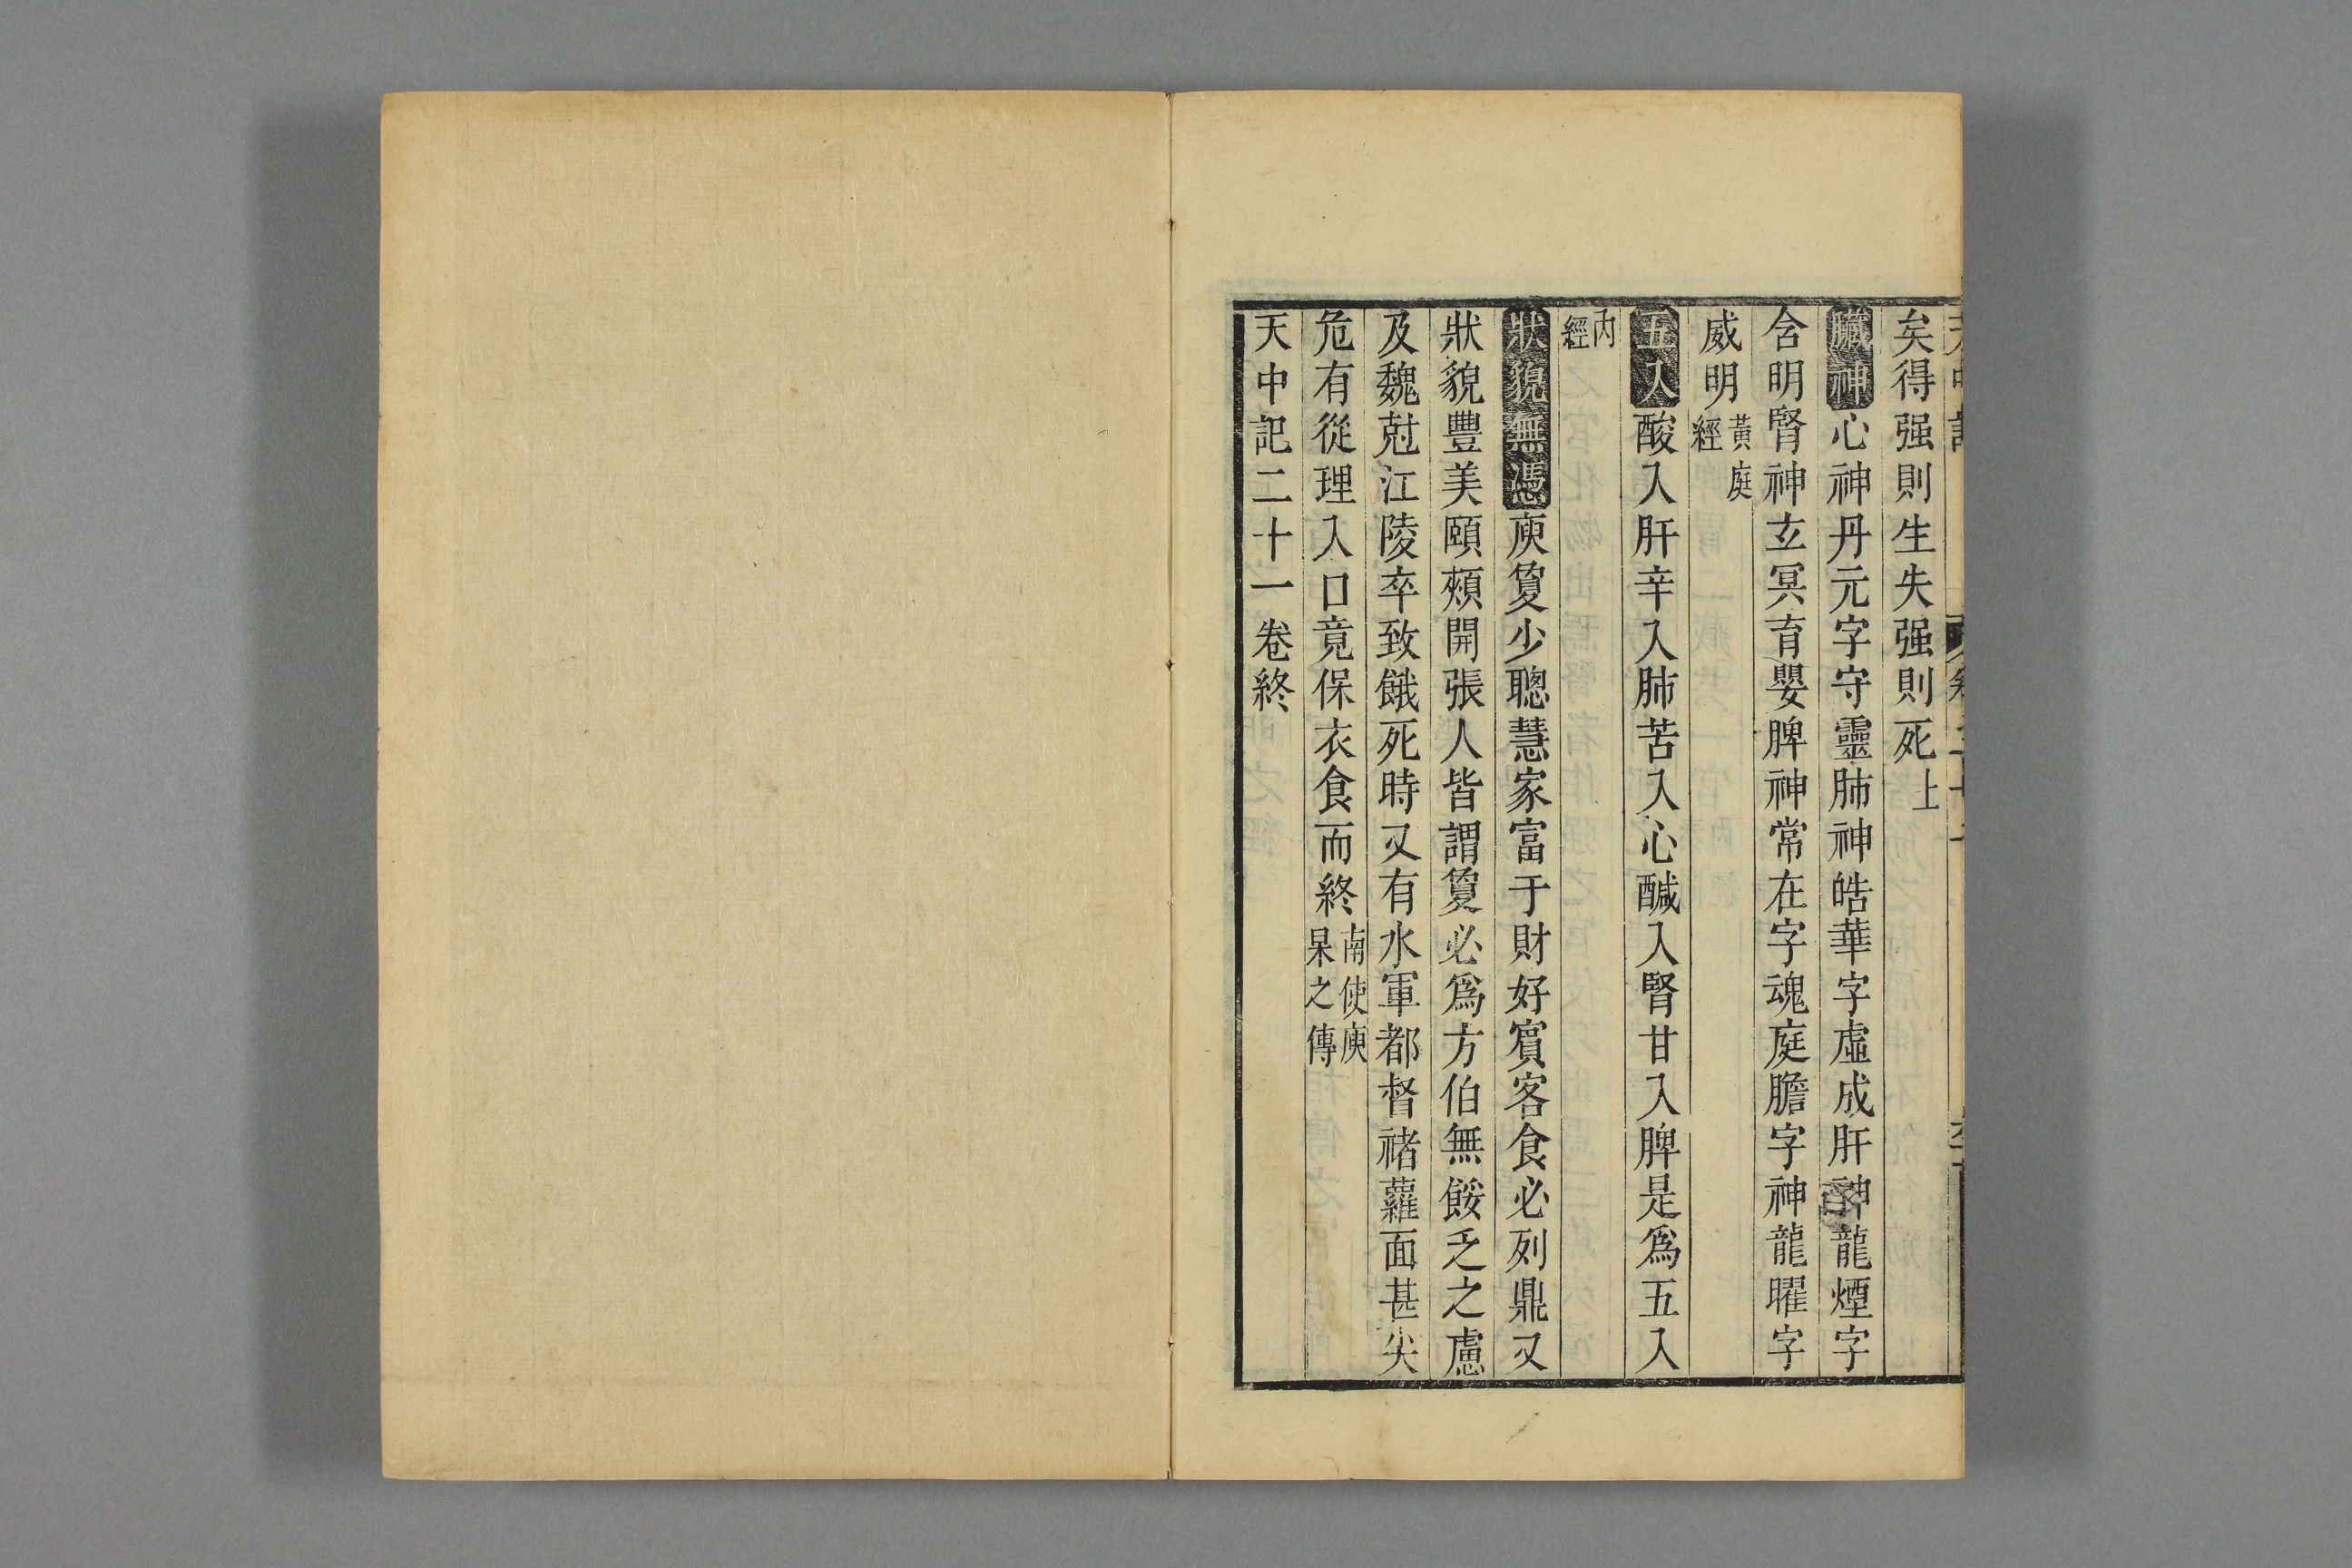 矣得强則生失强則死上
臟神心神丹元字守靈肺神皓華字虛成肝神龍煙字
含明腎神玄冥育嬰脾神常在字魂庭膽字神龍曜字
威明黃庭經
五入酸入肝辛入肺苦入心醎入腎甘入脾是爲五入
內經
狀貌無憑庾夐少聰慧家富于財好賔客食必列鼎又
狀貌豐美頤頰開張人皆謂夐必爲方伯無餒乏之慮
及魏尅江陵卒致餓死時又有水軍都督褚蘿面甚尖
危有從理入口竟保衣食而終南使庾杲之傳
天中記二十一卷終